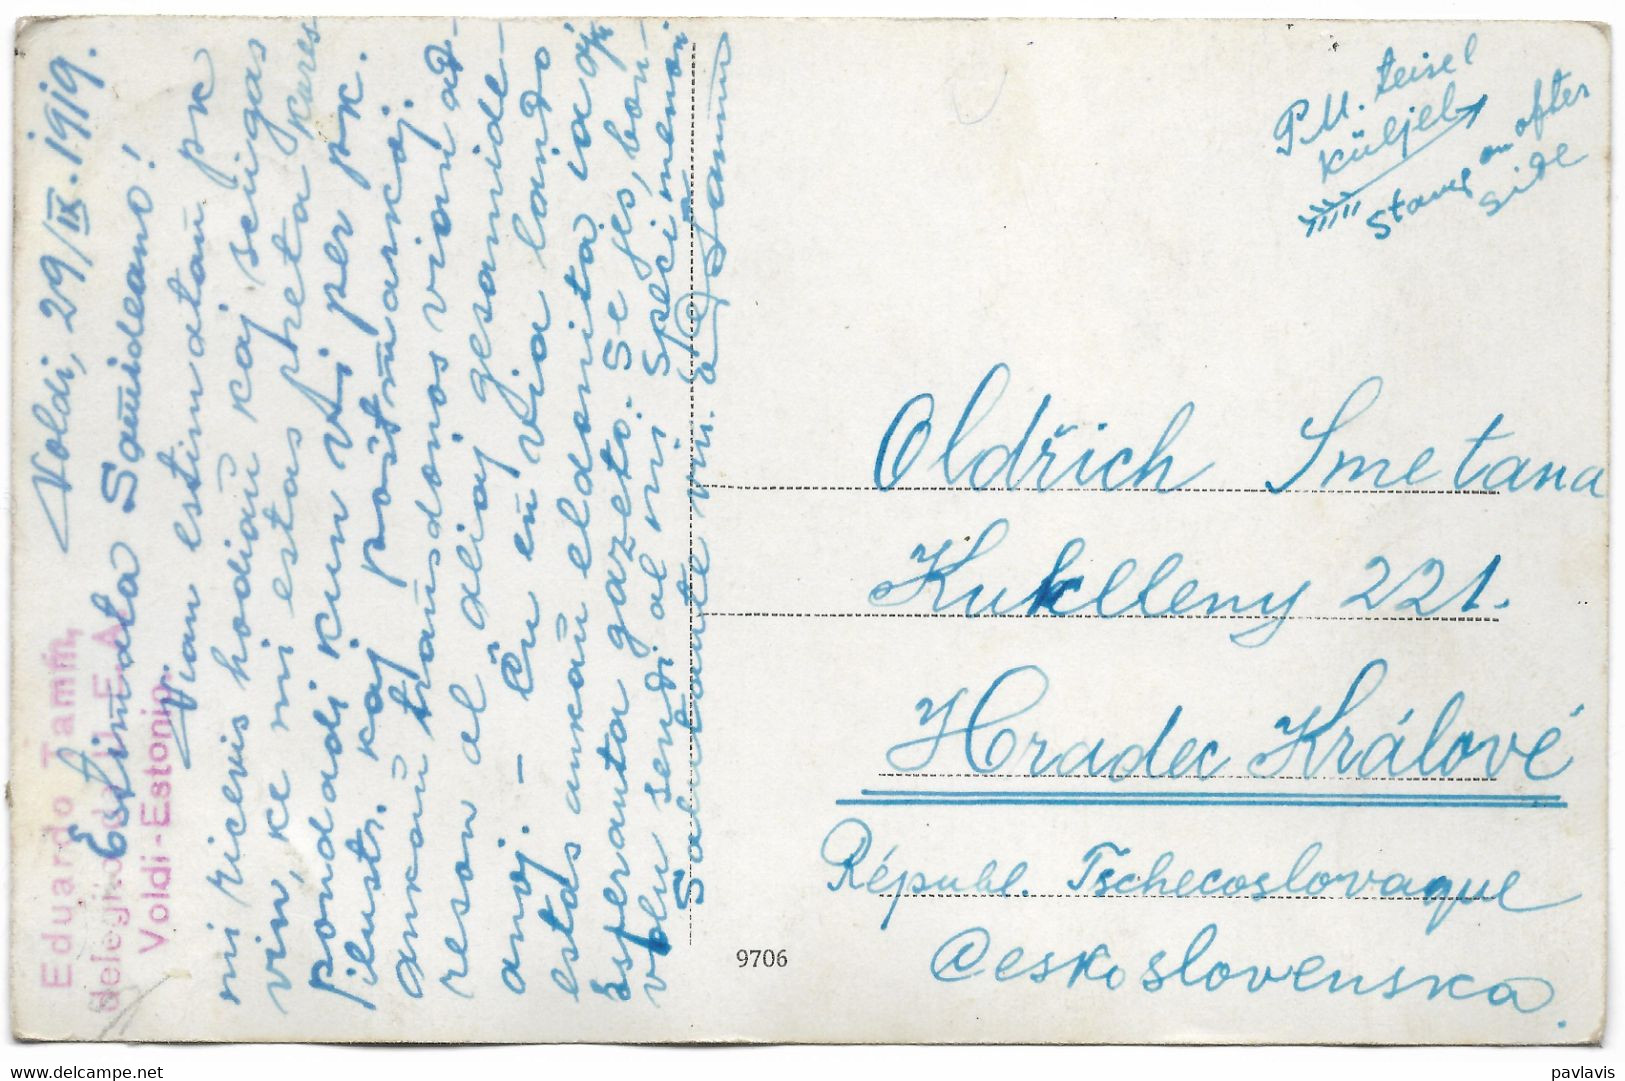 Voldi, 29/IX. 1919.
Estimata Samideano!
Vian estimatan pk
mi ricevis hodiaŭ kaj sciigas
vin, ke mi estas preta kores
pondadi kun Vi per pk.
ilustr. kaj poŝtmarkoj
ankaŭ transdonos vian ad-
reson al aliaj gesamide-
anoj. - Ĉu en via lando
estas ankaŭ eldonita ia aju
esperanta gazeto. Se jes, bon-
volu sendi al mi specimenon
Salutante vin. E. Tamm
Eduardo Tamm,
delegito de U. E. A.
Voldi-Estonio.
P.M. teisel
küljel
Stamp on after
side
Oldřich Smetana
Kuklleny 221.
Hradec Králové
Républ. Tschecoslovaque
Ceskoslovenska.
9706
https://www.delcampe.net
pavlavis